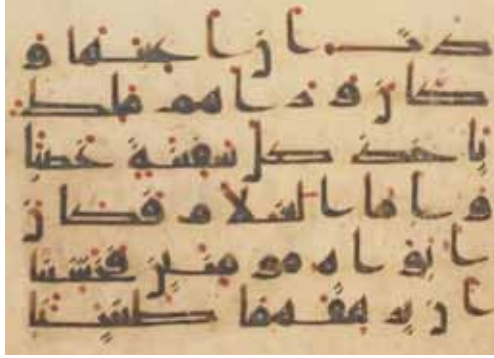 دت ان اعيبها و
كان وراهم ملك
ياخذ كل سفينة غصبا
واما الغلام فكان
ابواه مومنين فخشينا
ان يرهقهما طغينا